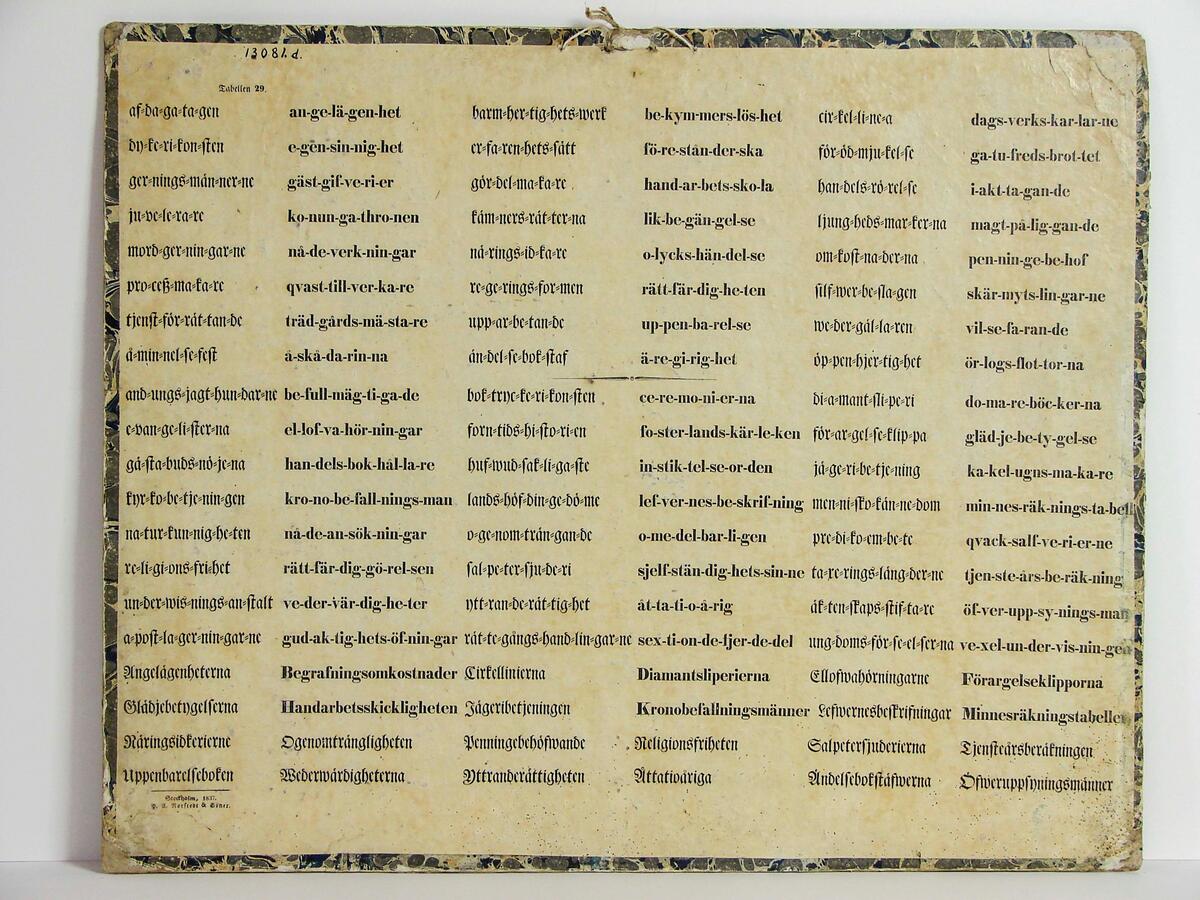 13081.d.
Tabellen 29.
af-da-ga-ta-gen an-ge-lä-gen-het barm-her-tig-hets-werk be-kym-mers-lös-het cir-kel-li-ne-a dags-verks-kar-lar-ne
dy-ke-ri-kon-sten e-gen-sin-nig-het er-fa-ren-hets-sätt fö-re-stån-der-ska för-öd-mju-kel-se ga-tu-freds-brot-tet
ger-nings-män-ner-ne gäst-gif-ve-ri-er gör-del-ma-ka-re hand-ar-bets-sko-la han-dels-rö-rel-se i-akt-ta-gan-de
ju-ve-le-ra-re ko-nun-ga-thro-nen käm-ners-rät-ter-na lik-be-gän-gel-se ljung-heds-mar-ker-na magt-på-lig-gan-de
mord-ger-nin-gar-ne nå-de-verk-nin-gar nä-rings-id-ka-re o-lycks-hän-del-se om-kost-na-der-na pen-nin-ge-be-hof
pro-ceß-ma-ka-re qvast-till-ver-ka-re re-ge-rings-for-men rätt-fär-dig-he-ten silf-wer-be-sla-gen skär-myts-lin-gar-ne
tjenst-för-rät-tan-de träd-gårds-mä-sta-re upp-ar-be-tan-de up-pen-ba-rel-se we-der-gäl-la-ren vil-se-fa-ran-de
å-min-nel-se-fest å-skå-da-rin-na än-del-se-bok-staf ä-re-gi-rig-het öp-pen-hjer-tig-het ör-logs-flot-tor-na
and-ungs-jagt-hun-dar-ne be-full-mäg-ti-ga-de bok-tryc-ke-ri-kon-sten ce-re-mo-ni-er-na di-a-mant-sli-pe-ri do-ma-re-böc-ker-na
e-van-ge-li-ster-na el-lof-va-hör-nin-gar forn-tids-hi-sto-ri-en fo-ster-lands-kär-le-ken för-ar-gel-se-klip-pa gläd-je-be-ty-gel-se
gä-sta-buds-nö-je-na han-dels-bok-hål-la-re huf-wud-sak-li-ga-ste in-stik-tel-se-or-den jä-ge-ri-be-tje-ning ka-kel-ugns-ma-ka-re
kyr-ko-be-tje-nin-gen kro-no-be-fall-nings-man lands-höf-din-ge-dö-me lef-ver-nes-be-skrif-ning men-ni-sko-kän-ne-dom min-nes-räk-nings-ta-bell
na-tur-kun-nig-he-ten nå-de-an-sök-nin-gar o-ge-nom-trän-gan-de o-me-del-bar-li-gen pre-di-ko-em-be-te qvack-salf-ve-ri-er-ne
re-li-gi-ons-fri-het rätt-fär-dig-gö-rel-sen sal-pe-ter-sju-de-ri sjelf-stän-dig-hets-sin-ne ta-re-rings-läng-der-ne tjen-ste-års-be-räk-ning
un-der-wis-nings-an-stalt ve-der-vär-dig-he-ter ytt-ran-de-rät-tig-het åt-ta-ti-o-å-rig äk-ten-skaps-stif-ta-re öf-ver-upp-sy-nings-man
a-post-la-ger-nin-gar-ne gud-ak-tig-hets-öf-nin-gar rät-te-gångs-hand-lin-gar-ne sex-ti-on-de-fjer-de-del ung-doms-för-se-el-ser-na ve-xel-un-der-vis-nin-gen
Angelägenheterna Begrafningsomkostnader Cirkellinierna Diamantsliperierna Ellofwahörningarne Förargelseklipporna
Glädjebetygelserna Handarbetsskickligheten Jägeribetjeningen Kronobefallningsmänner Lefwernesbeskrifningar Minnesräkningstabeller
Näringsidkerierne Ogenomträngligheten Penningebehöfwande Religionsfriheten Salpetersjuderierna Tjensteårsberäkningen
Uppenbarelseboken Wederwärdigheterna Yttranderättigheten Åttatioåriga Ändelsebokstäfwerna Öfweruppsyningsmänner
Stockholm, 1837.
P. A. Norstedt & Söner.